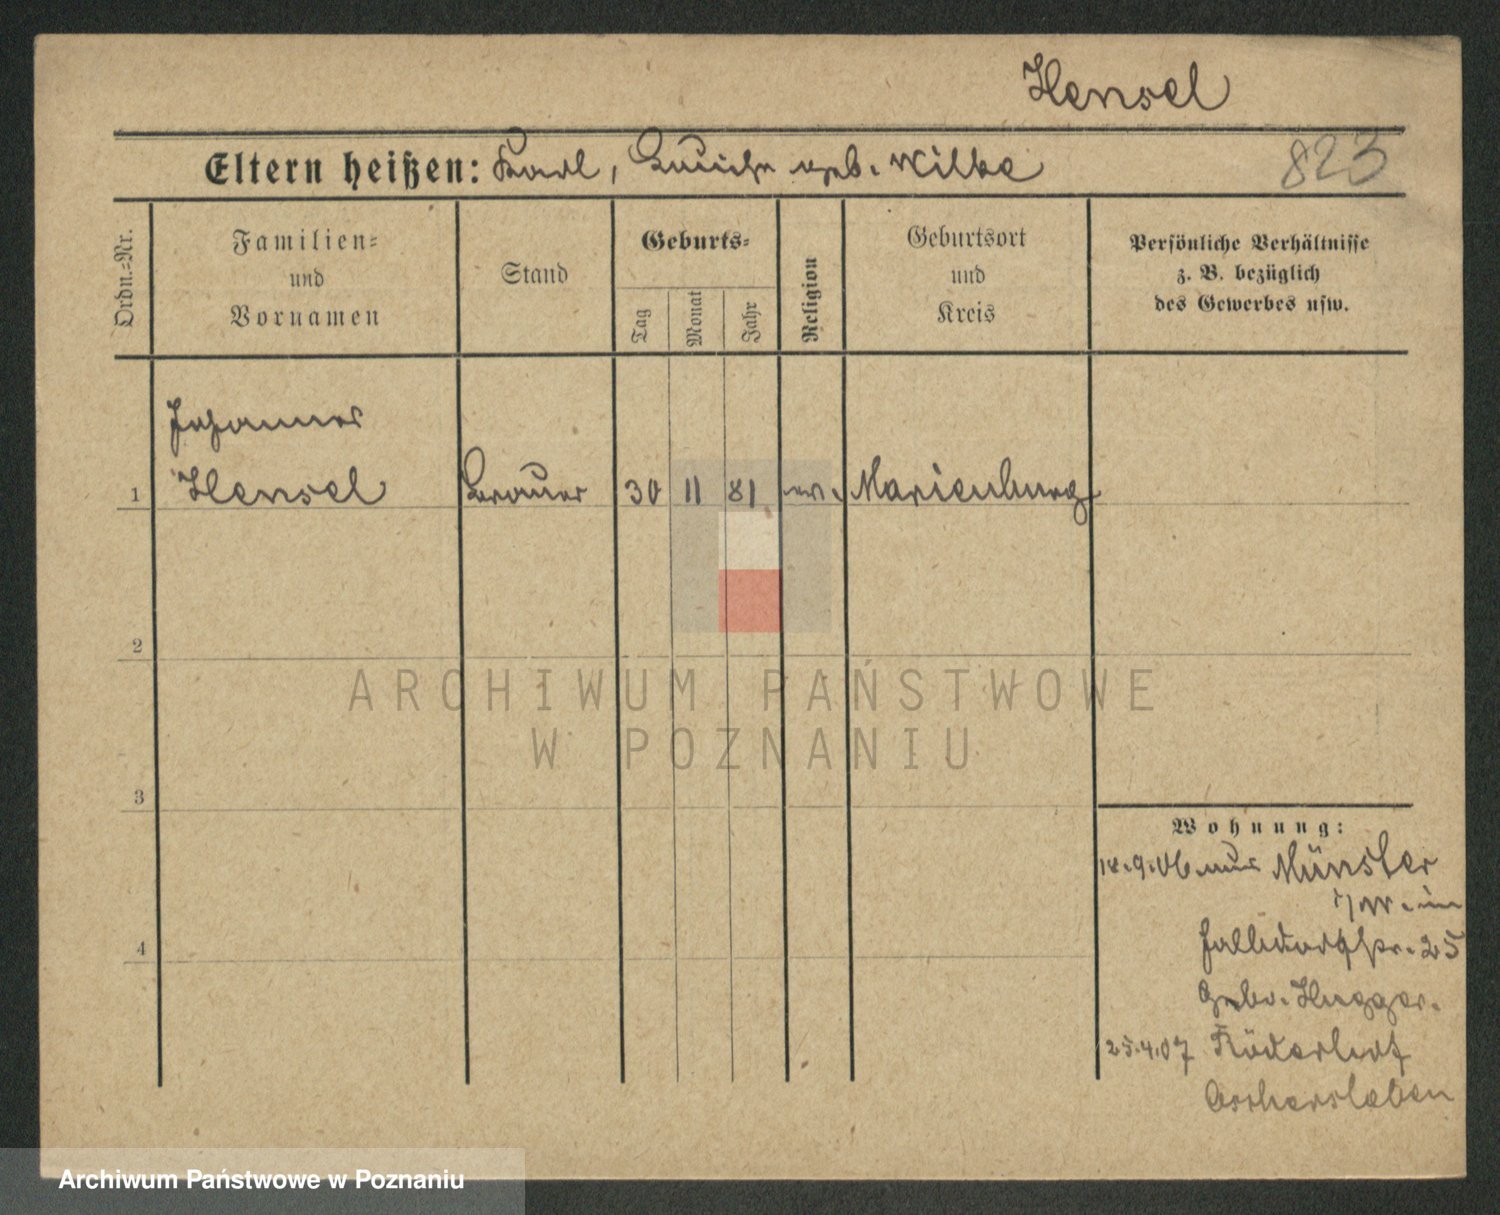 Hensel
Eltern heißen: Karl, Luise geb. Wilke
823
Ordn.=Nr.
Familien=
und
Vornamen
Stand
Geburts=
Tag
Monat
Jahr
Religion
Geburtsort
und
Kreis
Persönliche Verhältnisse
z. B. bezüglich
des Gewerbes usw.
Johannes
1 Hensel Brauer 30 11 81 ev. Marienburg
2
ARCHIWUM PAŃSTWOWE
W POZNANIU
3
Wohnung:
18.9.06 aus Münster
i/W. in
25
Gebr. Hugger.
25.4.07 Röderhof
Aschersleben
4
Archiwum Państwowe w Poznaniu